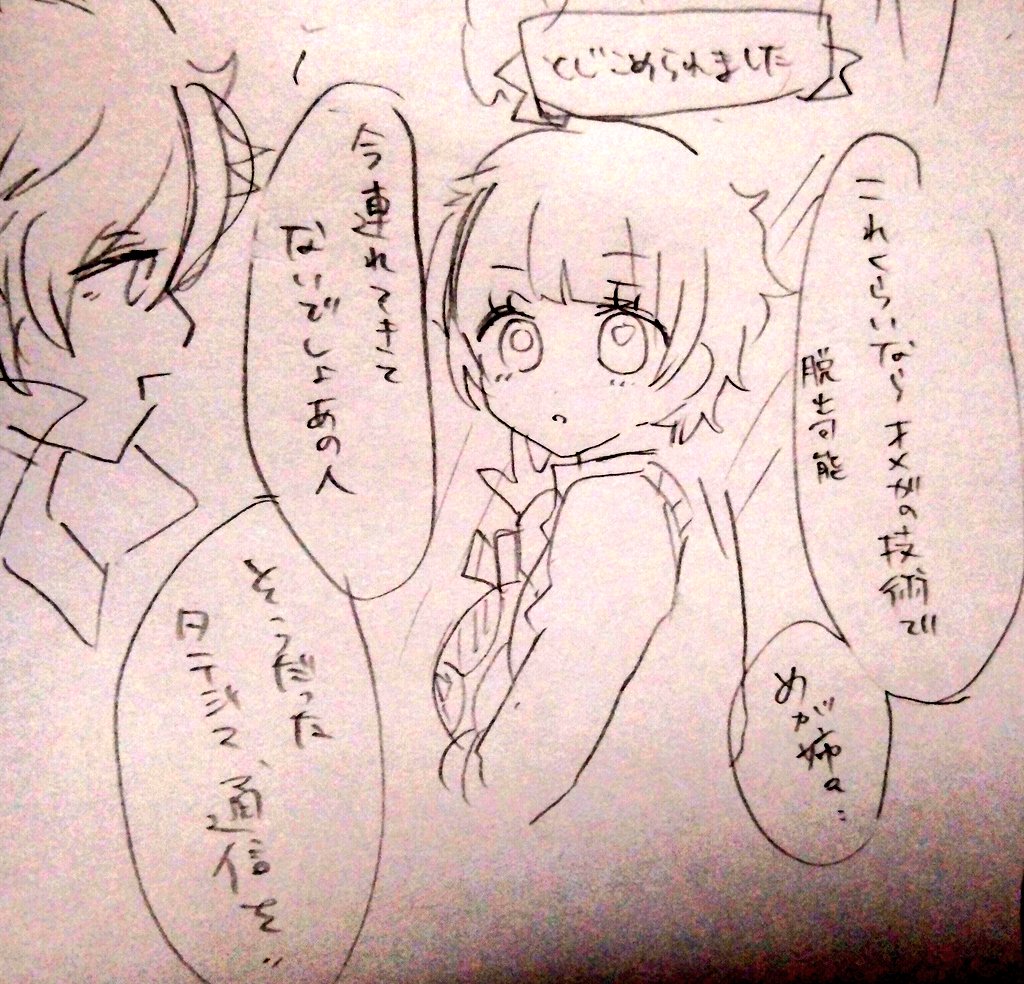 とじこめられました
これくらいならオメガの技術で
脱出可能
めが姉は…
今連れてきて
ないでしょあの人
そうだった
タテジマ、通信を…